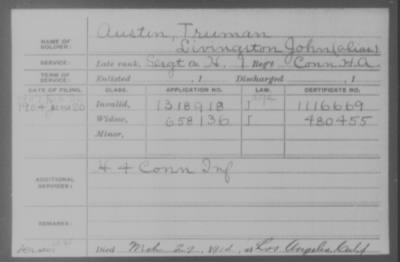 Austin, Truman
NAME OF SOLDIER: Livingston John (alias)
SERVICE: Late rank, Sergt Co H, 1 Reg't Conn H.A.
TERM OF SERVICE: Enlisted , 1 Discharged , 1
DATE OF FILING. CLASS. APPLICATION NO. LAW. CERTIFICATE NO.
1904 20 Invalid, 1318918 1116669
Widow, 658136 480455
Minor,
ADDITIONAL SERVICES: H 4 Conn Inf
REMARKS:
Died Mch 27, 191 , at Los Angeles, Calif